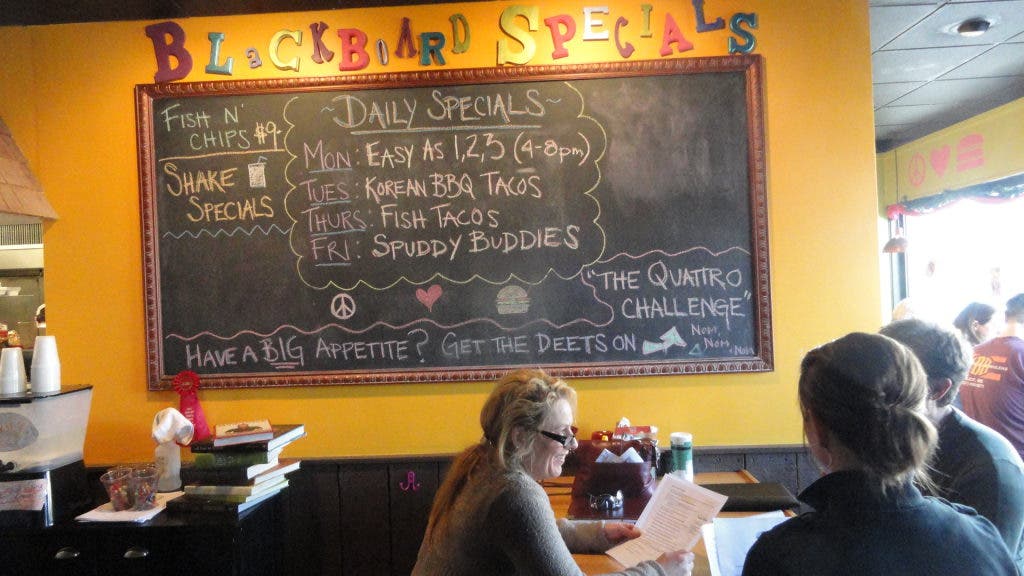 BLACKBOARD SPECIALS
FISH N'
CHIPS $9-
SHAKE
SPECIALS
~DAILY SPECIALS~
MON: EASY AS 1,2,3 (4-8pm)
TUES: KOREAN BBQ TACOS
THURS: FISH TACOS
FRI: SPUDDY BUDDIES
"THE QUATTRO
CHALLENGE"
HAVE A BIG APPETITE? GET THE DEETS ON
NOM,
NOM,
NOM
A.